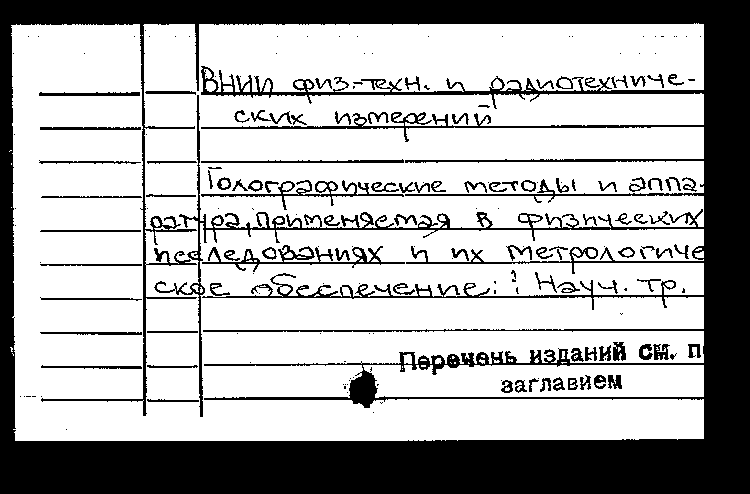 ВНИИ физ.-техн. и радиотехниче-
ских измерений
Голографические методы и аппа-
ратура, применяемая в физических
исследованиях и их метрологиче
ское обеспечение: : Науч. тр.
Перечень изданий см. п
заглавием